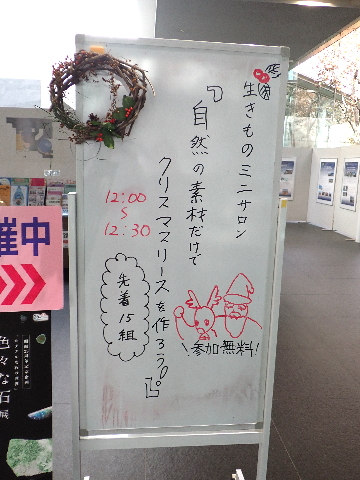 生きものミニサロン
『自然の素材だけで
クリスマスリースを作ろう。』
12:00
～
12:30
先着15組
参加無料!
催中
色々な石